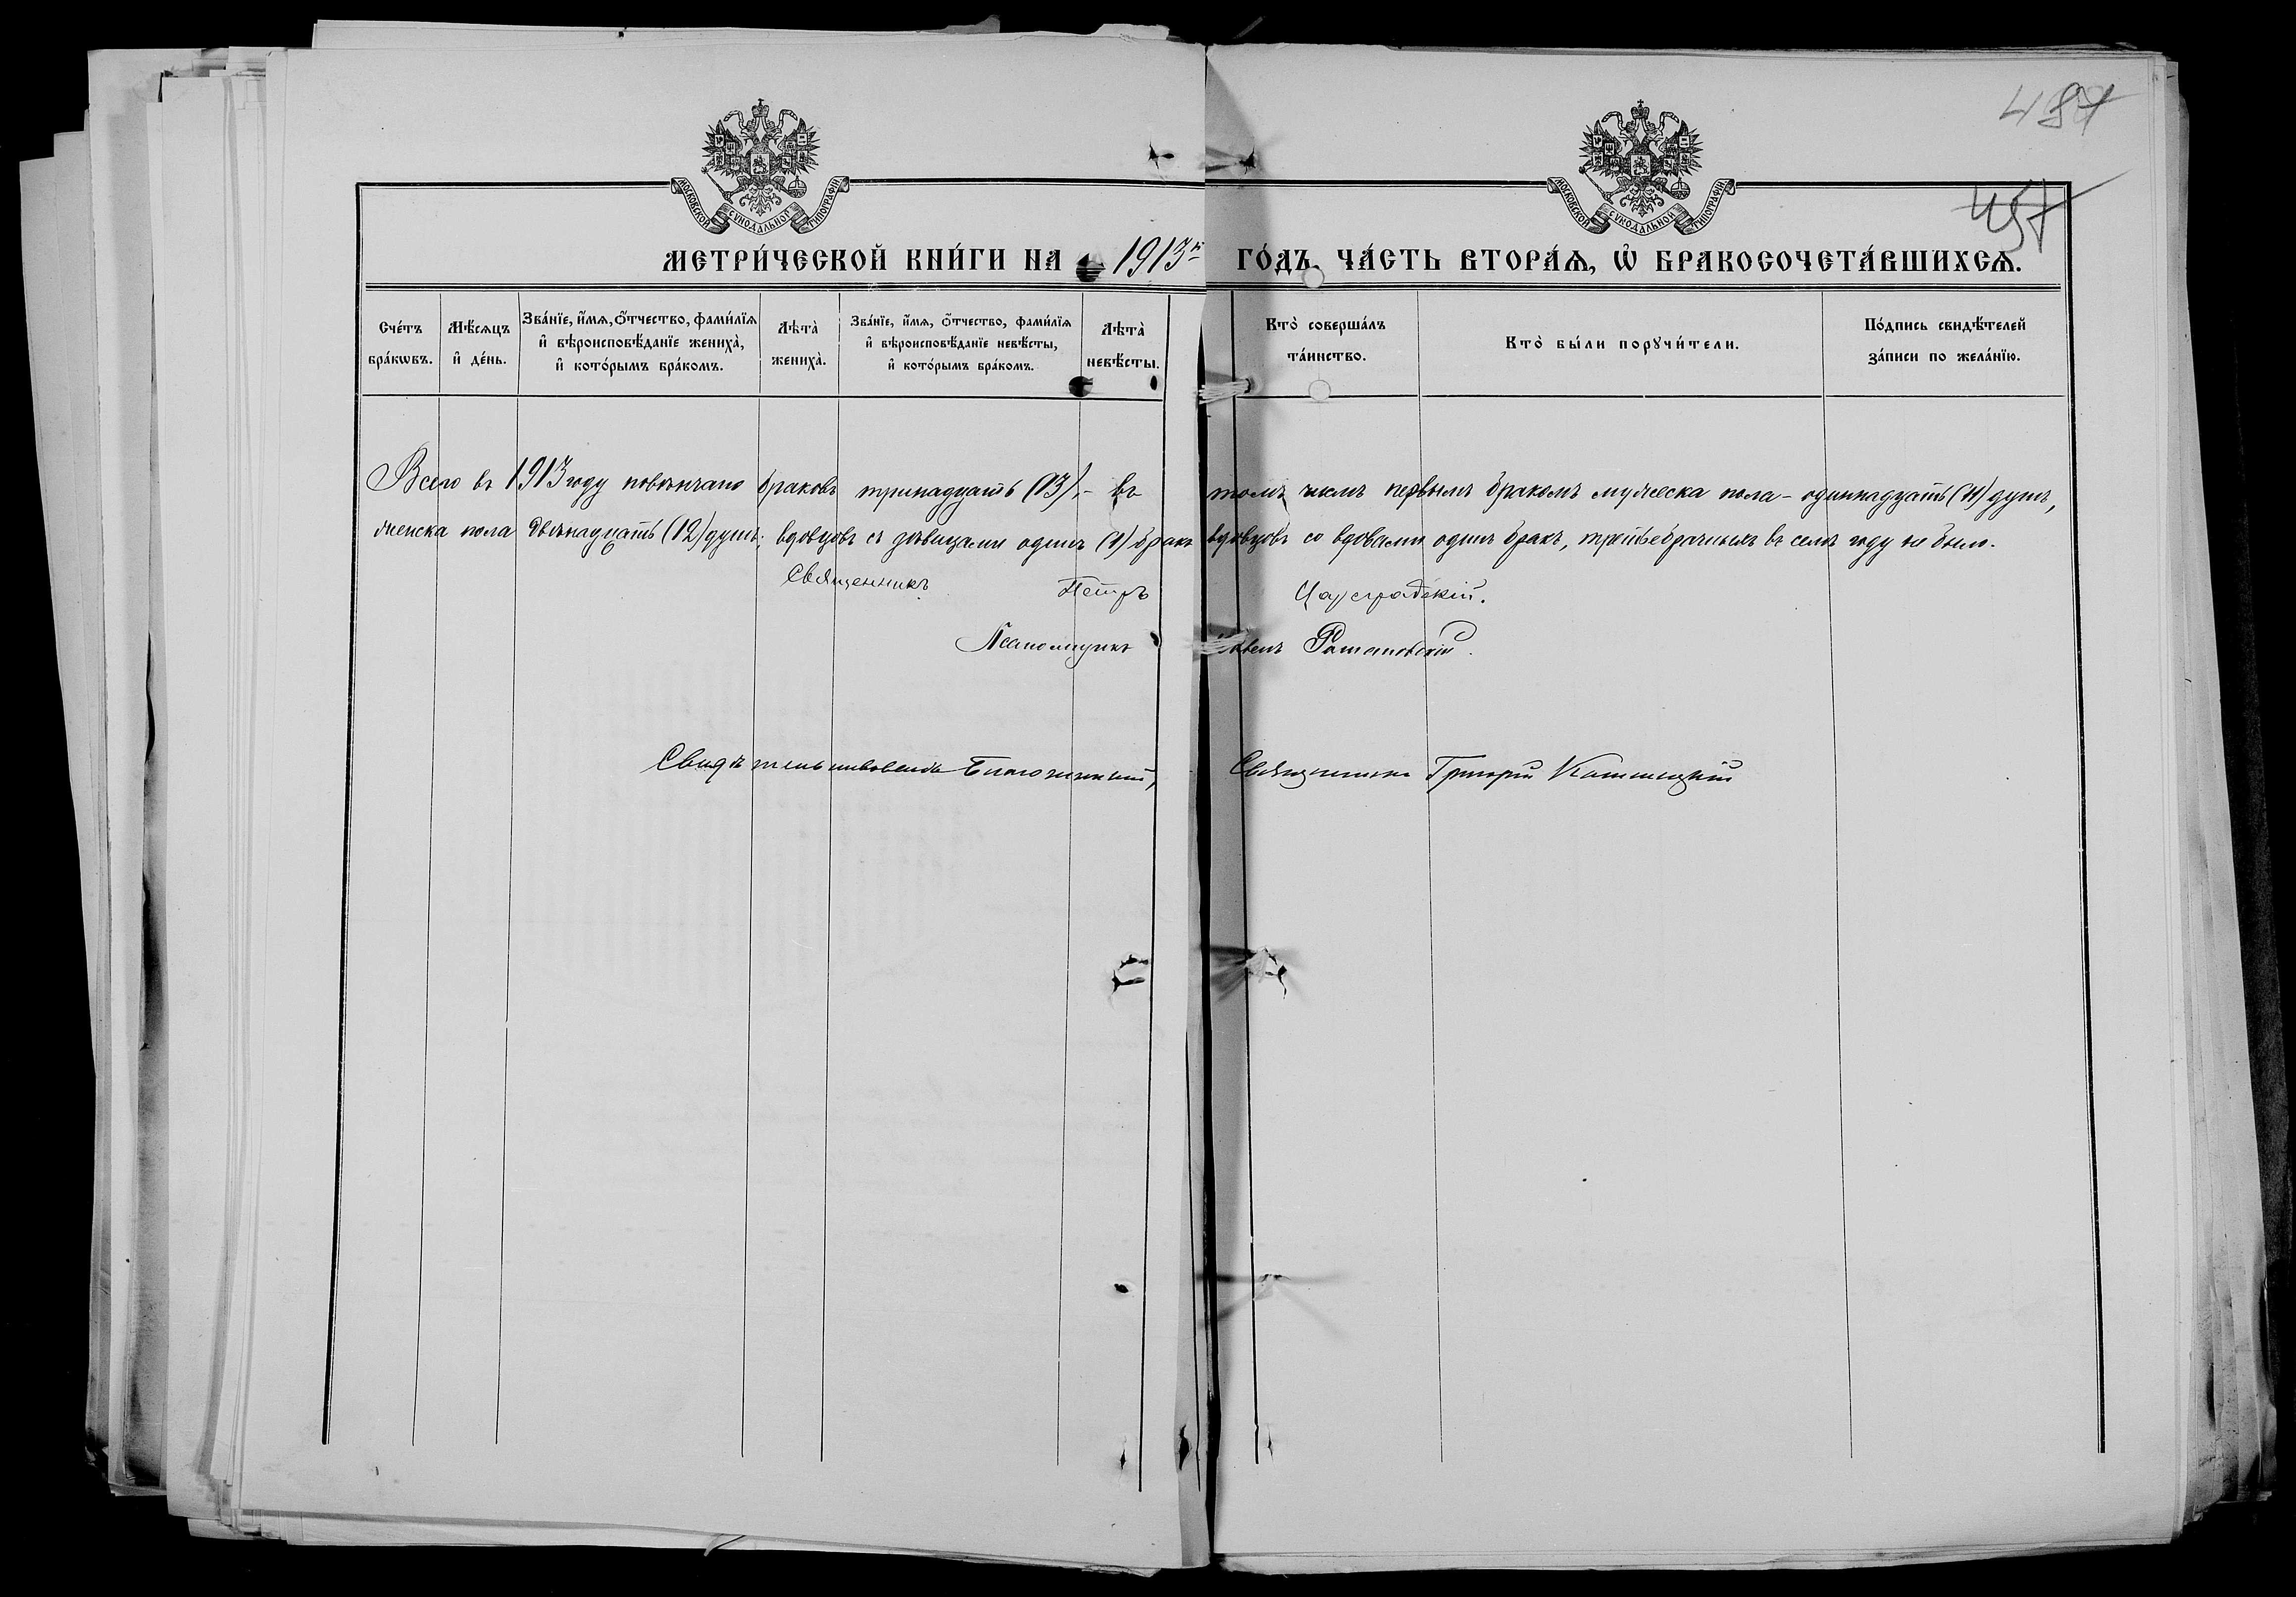 487
457
МОСКОВСКОЙ СѴНОДАЛЬНОЙ ТИПОГРАФІИ
МОСКОВСКОЙ СѴНОДАЛЬНОЙ ТИПОГРАФІИ
МЕТРИ́ЧЕСКОЙ КНИ́ГИ НА 1913й ГО́ДЪ, ЧА́СТЬ ВТОРА́Ѧ, Ѽ БРАКОСОЧЕТА́ВШИХСѦ.
Сче́тъ бра́кѡвъ.
Мѣ́сѧцъ и҆ де́нь.
Зва́нїе, и҆́мѧ, ѻ҆́тчество, фами́лїѧ и҆ вѣроисповѣ́данїе жениха̀, и҆ кото́рымъ бра́комъ.
Лѣта̀ жениха̀.
Зва́нїе, и҆́мѧ, ѻ҆́тчество, фами́лїѧ и҆ вѣроисповѣ́данїе невѣ́сты, и҆ кото́рымъ бра́комъ.
Лѣта̀ невѣ́сты.
Кто̀ соверша́лъ та́инство.
Кто̀ бы́ли порꙋчи́тели.
По́дпись свидѣ́телей за́писи по жела́нїю.
Всего въ 1913 году повѣнчано браковъ тринадцать (13), – въ томъ числѣ первымъ бракомъ мужеска пола – одиннадцать (11) душъ,
женска пола двѣнадцать (12) душъ; вдовцовъ съ дѣвицами одинъ (1) бракъ вдовцовъ со вдовами одинъ бракъ, третьебрачныхъ въ семъ году не было.
Священникъ Петръ Цареградскій.
Псаломщикъ
Свидѣтельствовалъ Благочинный, Священникъ Григорій